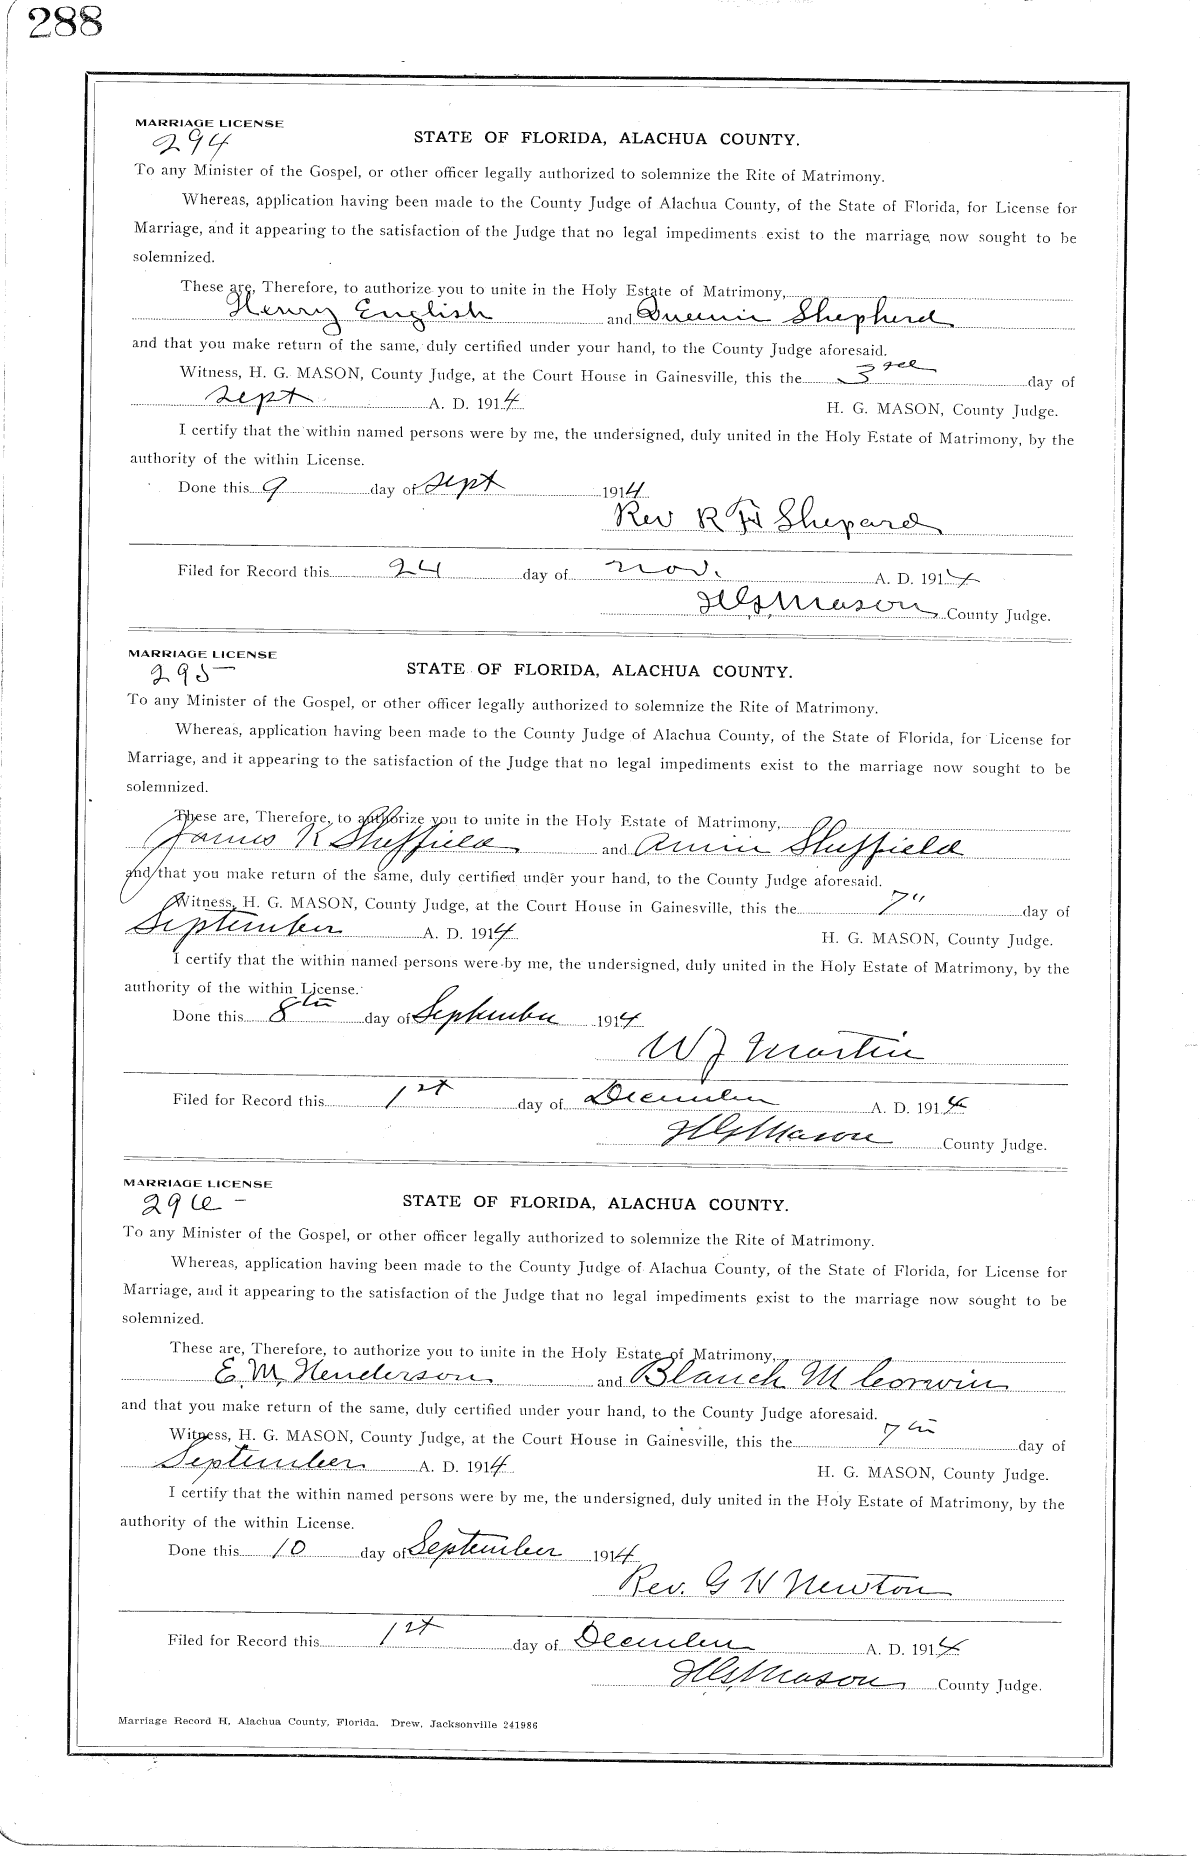 288
MARRIAGE LICENSE
294
STATE OF FLORIDA, ALACHUA COUNTY.
To any Minister of the Gospel, or other officer legally authorized to solemnize the Rite of Matrimony.
Whereas, application having been made to the County Judge of Alachua County, of the State of Florida, for License for
Marriage, and it appearing to the satisfaction of the Judge that no legal impediments exist to the marriage now sought to be
solemnized.
These are, Therefore, to authorize you to unite in the Holy Estate of Matrimony,
Henry English and Queenie Shepherd
and that you make return of the same, duly certified under your hand, to the County Judge aforesaid.
Witness, H. G. MASON, County Judge, at the Court House in Gainesville, this the 3rd day of
Sept A. D. 1914 H. G. MASON, County Judge.
I certify that the within named persons were by me, the undersigned, duly united in the Holy Estate of Matrimony, by the
authority of the within License.
Done this 9 day of Sept 1914
Rev R H Shepard
Filed for Record this 24 day of Nov. A. D. 1914
H G Mason County Judge.
MARRIAGE LICENSE
295
STATE OF FLORIDA, ALACHUA COUNTY.
To any Minister of the Gospel, or other officer legally authorized to solemnize the Rite of Matrimony.
Whereas, application having been made to the County Judge of Alachua County, of the State of Florida, for License for
Marriage, and it appearing to the satisfaction of the Judge that no legal impediments exist to the marriage now sought to be
solemnized.
These are, Therefore, to authorize you to unite in the Holy Estate of Matrimony,
James K Sheffield and Annie Sheffield
and that you make return of the same, duly certified under your hand, to the County Judge aforesaid.
Witness, H. G. MASON, County Judge, at the Court House in Gainesville, this the 7" day of
September A. D. 1914 H. G. MASON, County Judge.
I certify that the within named persons were by me, the undersigned, duly united in the Holy Estate of Matrimony, by the
authority of the within License.
Done this 8th day of September 1914
W J Martin
Filed for Record this 1st day of December A. D. 1914
H G Mason County Judge.
MARRIAGE LICENSE
296 -
STATE OF FLORIDA, ALACHUA COUNTY.
To any Minister of the Gospel, or other officer legally authorized to solemnize the Rite of Matrimony.
Whereas, application having been made to the County Judge of Alachua County, of the State of Florida, for License for
Marriage, and it appearing to the satisfaction of the Judge that no legal impediments exist to the marriage now sought to be
solemnized.
These are, Therefore, to authorize you to unite in the Holy Estate of Matrimony,
E. M. Henderson and Blanch M Corwin
and that you make return of the same, duly certified under your hand, to the County Judge aforesaid.
Witness, H. G. MASON, County Judge, at the Court House in Gainesville, this the 7th day of
September A. D. 1914 H. G. MASON, County Judge.
I certify that the within named persons were by me, the undersigned, duly united in the Holy Estate of Matrimony, by the
authority of the within License.
Done this 10 day of September 1914
Rev. G W Newton
Filed for Record this 1st day of December A. D. 1914
H G Mason County Judge.
Marriage Record H, Alachua County, Florida. Drew, Jacksonville 241986